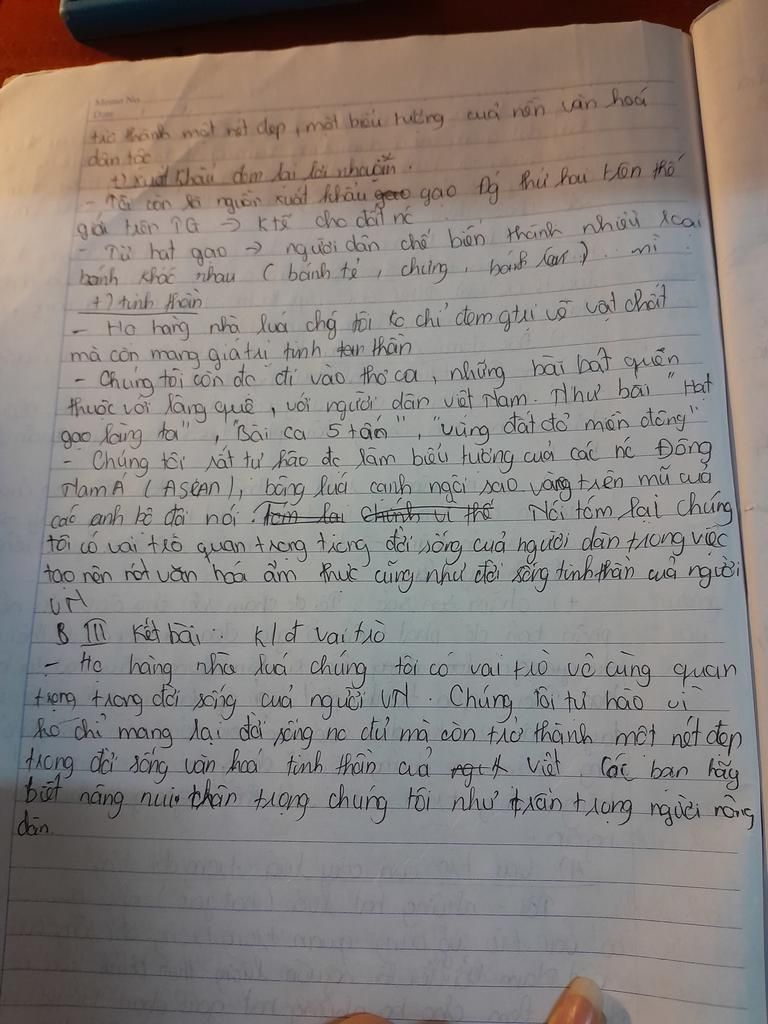 Memo No.
Date
trở thành một nét đẹp, một biểu tượng cuả nền văn hoá
dân tộc
+) xuất khẩu đem lại lợi nhuận.
- Tôi còn là nguồn xuất khẩu gạo gạo đứng thứ hai trên thế
giới trên TG → ktế cho đất nc
- Từ hạt gạo → người dân chế biến thành nhiều loại
bánh khác nhau (bánh tẻ, chưng, bánh mì
+) tinh thần
- Họ hàng nhà luá chg tôi ko chỉ đem gtrị về vật chất
mà còn mang giá trị tinh thần
- Chúng tôi còn đc đi vào thơ ca, những bài hát quen
thuộc với làng quê, với người dân việt Nam. Như bài "Hạt
gạo làng ta", "Bài ca 5 tấn", "vùng đất đỏ miền đông"
- Chúng tôi rất tự hào đc làm biểu tượng cuả các nc Đông
Nam Á (ASEAN), bông luá cạnh ngôi sao vàng trên mũ cuả
các anh bộ đội nói. Tóm lại chính vì thế Nói tóm lại chúng
tôi có vai trò quan trọng trong đời sống cuả người dân trong việc
tạo nên nét văn hoá ẩm thực cũng như đời sống tinh thần cuả người
VN
B III Kết bài: K/đ vai trò
- Họ hàng nhà luá chúng tôi có vai trò vô cùng quan
trọng trong đời sống cuả người VN. Chúng tôi tự hào vì
ko chỉ mang lại đời sống no đủ mà còn trở thành một nét đẹp
trong đời sống văn hoá tinh thần cuả việt. Các bạn hãy
biết nâng niu, trân trọng chúng tôi như trân trọng người nông
dân.